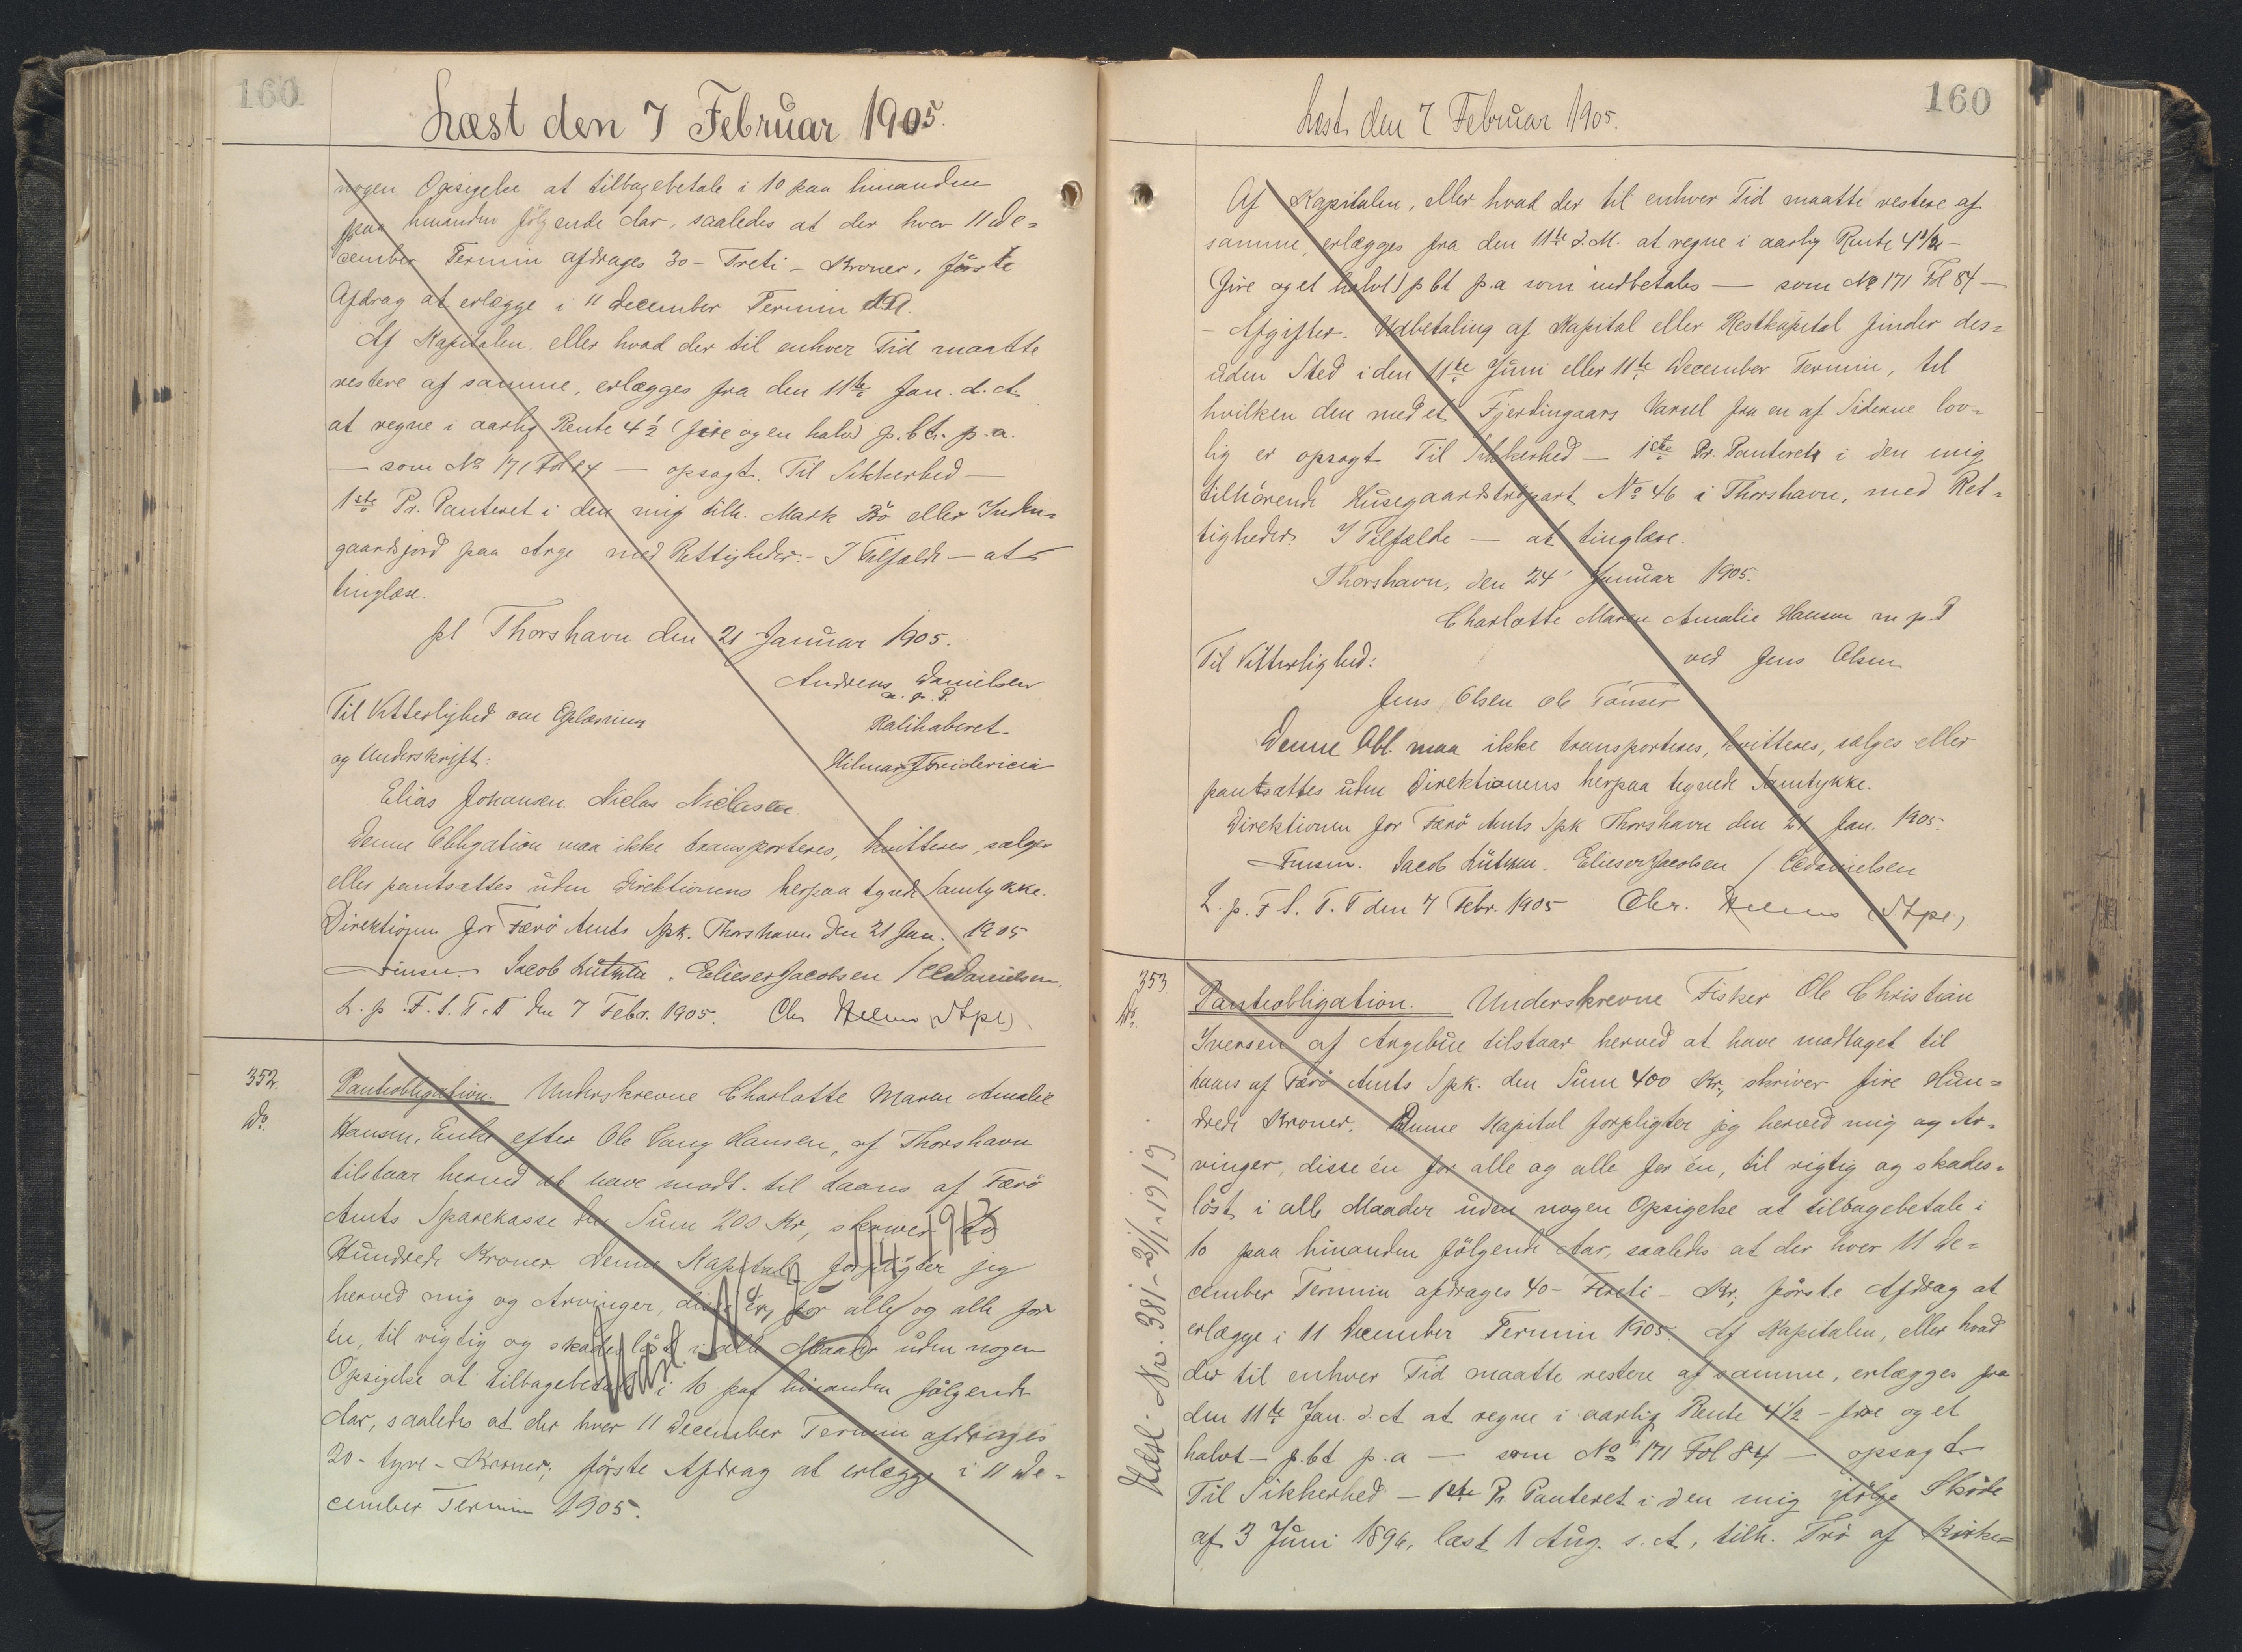 160
Læst den 7 Februar 1905.
nogen Opsigelse at tilbagebetale i 10 paa hinanden
paa hinanden følgende Aar, saaledes at der hver 11 De=
cember Termin afdrages 30 - Treti - Kroner, første
Afdrag at erlægge i 11 December Termin d.A.
Af Kapitalen eller hvad der til enhver Tid maatte
restere af samme, erlægges fra den 11te Jan. d. A.
at regne i aarlig Rente 4½ (fire og en halv) p. Ct. p. a.
— som No 171 Fol 84 — opsagt. Til Sikkerhed —
1ste Pr. Panteret i den mig tilh. Mark Bö eller Inden=
gaardsjord paa Arge med Rettigheder. - I Tilfælde — at
tinglæse.
pt Thorshavn den 21 Januar 1905.
Andreas Danielsen
m. p. P.
Til Vitterlighed om Oplæsning
Ratihaberet.
og Underskrift:
Hilmar Freidericia
Elias Johansen Niclas Niclasen.
Denne Obligation maa ikke transporteres, kvitteres, sælges
eller pantsættes uden Direktionens herpaa tegnede Samtykke.
Direktionen for Færö Amts Spk. Thorshavn den 21 Jan. 1905
Finsen. Jacob Lützen. Elieser Jacobsen / CCDanielsen.
L. p. F. S. T. T den 7 Febr. 1905. Chr Helms (Stpl)
352.
Do.
Panteobligation. Underskrevne Charlotte Maren Amalie
Hansen, Enke efter Ole Vang Hansen, af Thorshavn
tilstaar herved at have modt. til Laans af Færö
Amts Sparekasse den Sum 200 Kr, skriver to
Hundrede Kroner. Denne Kapital forpligter jeg
herved mig og Arvinger, disse én for alle og alle for
én, til rigtig og skadesløst i alle Maader uden nogen
Opsigelse at tilbagebetale i 10 paa hinanden følgende
Aar, saaledes at der hver 11 December Termin afdrages
20 - tyve - Kroner; første Afdrag at erlægge i 11 De=
cember Termin 1905.
Udsl. 1/4 1913
160
Læst den 7 Februar 1905.
Af Kapitalen, eller hvad der til enhver Tid maatte restere af
samme, erlægges fra den 11te d. M. at regne i aarlig Rente 4½ -
(fire og et halvt) p Ct p.a som indbetales — som No 171 Fol. 84 —
- Afgifter. Udbetaling af Kapital eller Restkapital finder des=
uden Sted i den 11te Juni eller 11te December Termin, til
hvilken den med et Fjerdingaars Varsel fra en af Siderne lov=
lig er opsagt. Til Sikkerhed — 1ste Pr. Panteret i den mig
tilhörende Husegaardstrøpart No 46 i Thorshavn, med Ret=
tigheder. I Tilfælde — at tinglæse.
Thorshavn, den 24' Januar 1905.
Charlotte Maren Amalie Hansen m. p. P
Til Vitterlighed:
ved Jens Olsen
Jens Olsen Ole
Denne Obl. maa ikke transporteres, kvitteres, sælges eller
pantsættes uden Direktionens herpaa tegnede Samtykke.
Direktionen for Færö Amts Spk Thorshavn den 21 Jan. 1905.
Finsen. Jacob Lützen. Elieser Jacobsen / CCDanielsen
L. p. F S. T. T den 7 Febr. 1905 Chr. Helms (Stpl)
353.
Do.
Panteobligation. Underskrevne Fisker Ole Christian
Iversen af Argebue tilstaar herved at have modtaget til
Laans af Færö Amts Spk. den Sum 400 Kr, skriver fire Hun=
drede Kroner. Denne Kapital forpligter jeg herved mig og Ar=
vinger, disse én for alle og alle for én, til rigtig og skades=
løst i alle Maader uden nogen Opsigelse at tilbagebetale i
10 paa hinanden følgende Aar, saaledes at der hver 11 De=
cember Termin afdrages 40 - Fireti - Kr; første Afdrag at
erlægge i 11 December Termin 1905. Af Kapitalen, eller hvad
der til enhver Tid maatte restere af samme, erlægges fra
den 11te Jan. d. A at regne i aarlig Rente 4½ - fire og et
halvt - p. Ct p. a — som No 171 Fol 84 — opsagt
Til Sikkerhed — 1ste Pr Panteret i den mig ifølge Skøde
af 3 Juni 1896, læst 1 Aug. s. A, tilh. Trö af Kirke=
Udsl. Nr. 381 - 31/1-1919.